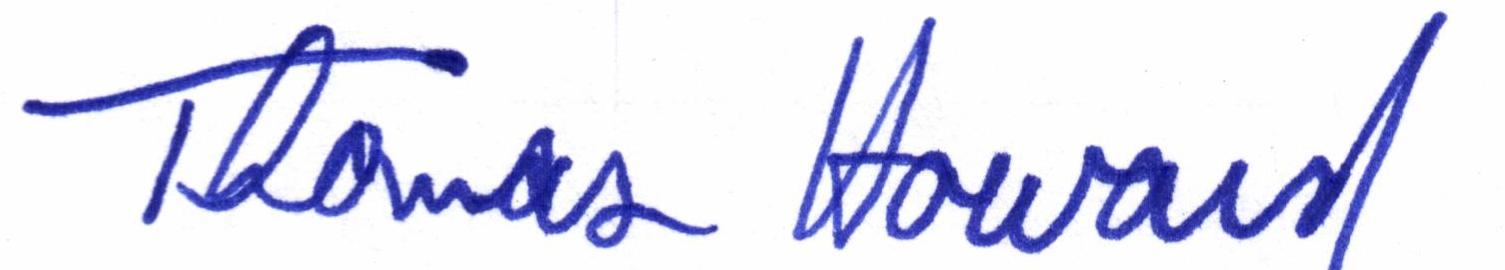 Thomas Howard